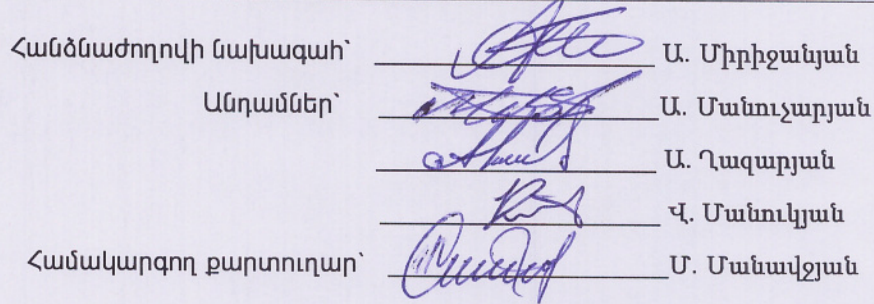 Հանձնաժողովի նախագահ՝ Ա. Միրիջանյան
Անդամներ՝ Ա. Մանուչարյան
Ա. Ղազարյան
Վ. Մանուկյան
Համակարգող քարտուղար՝ Մ. Մանավջյան